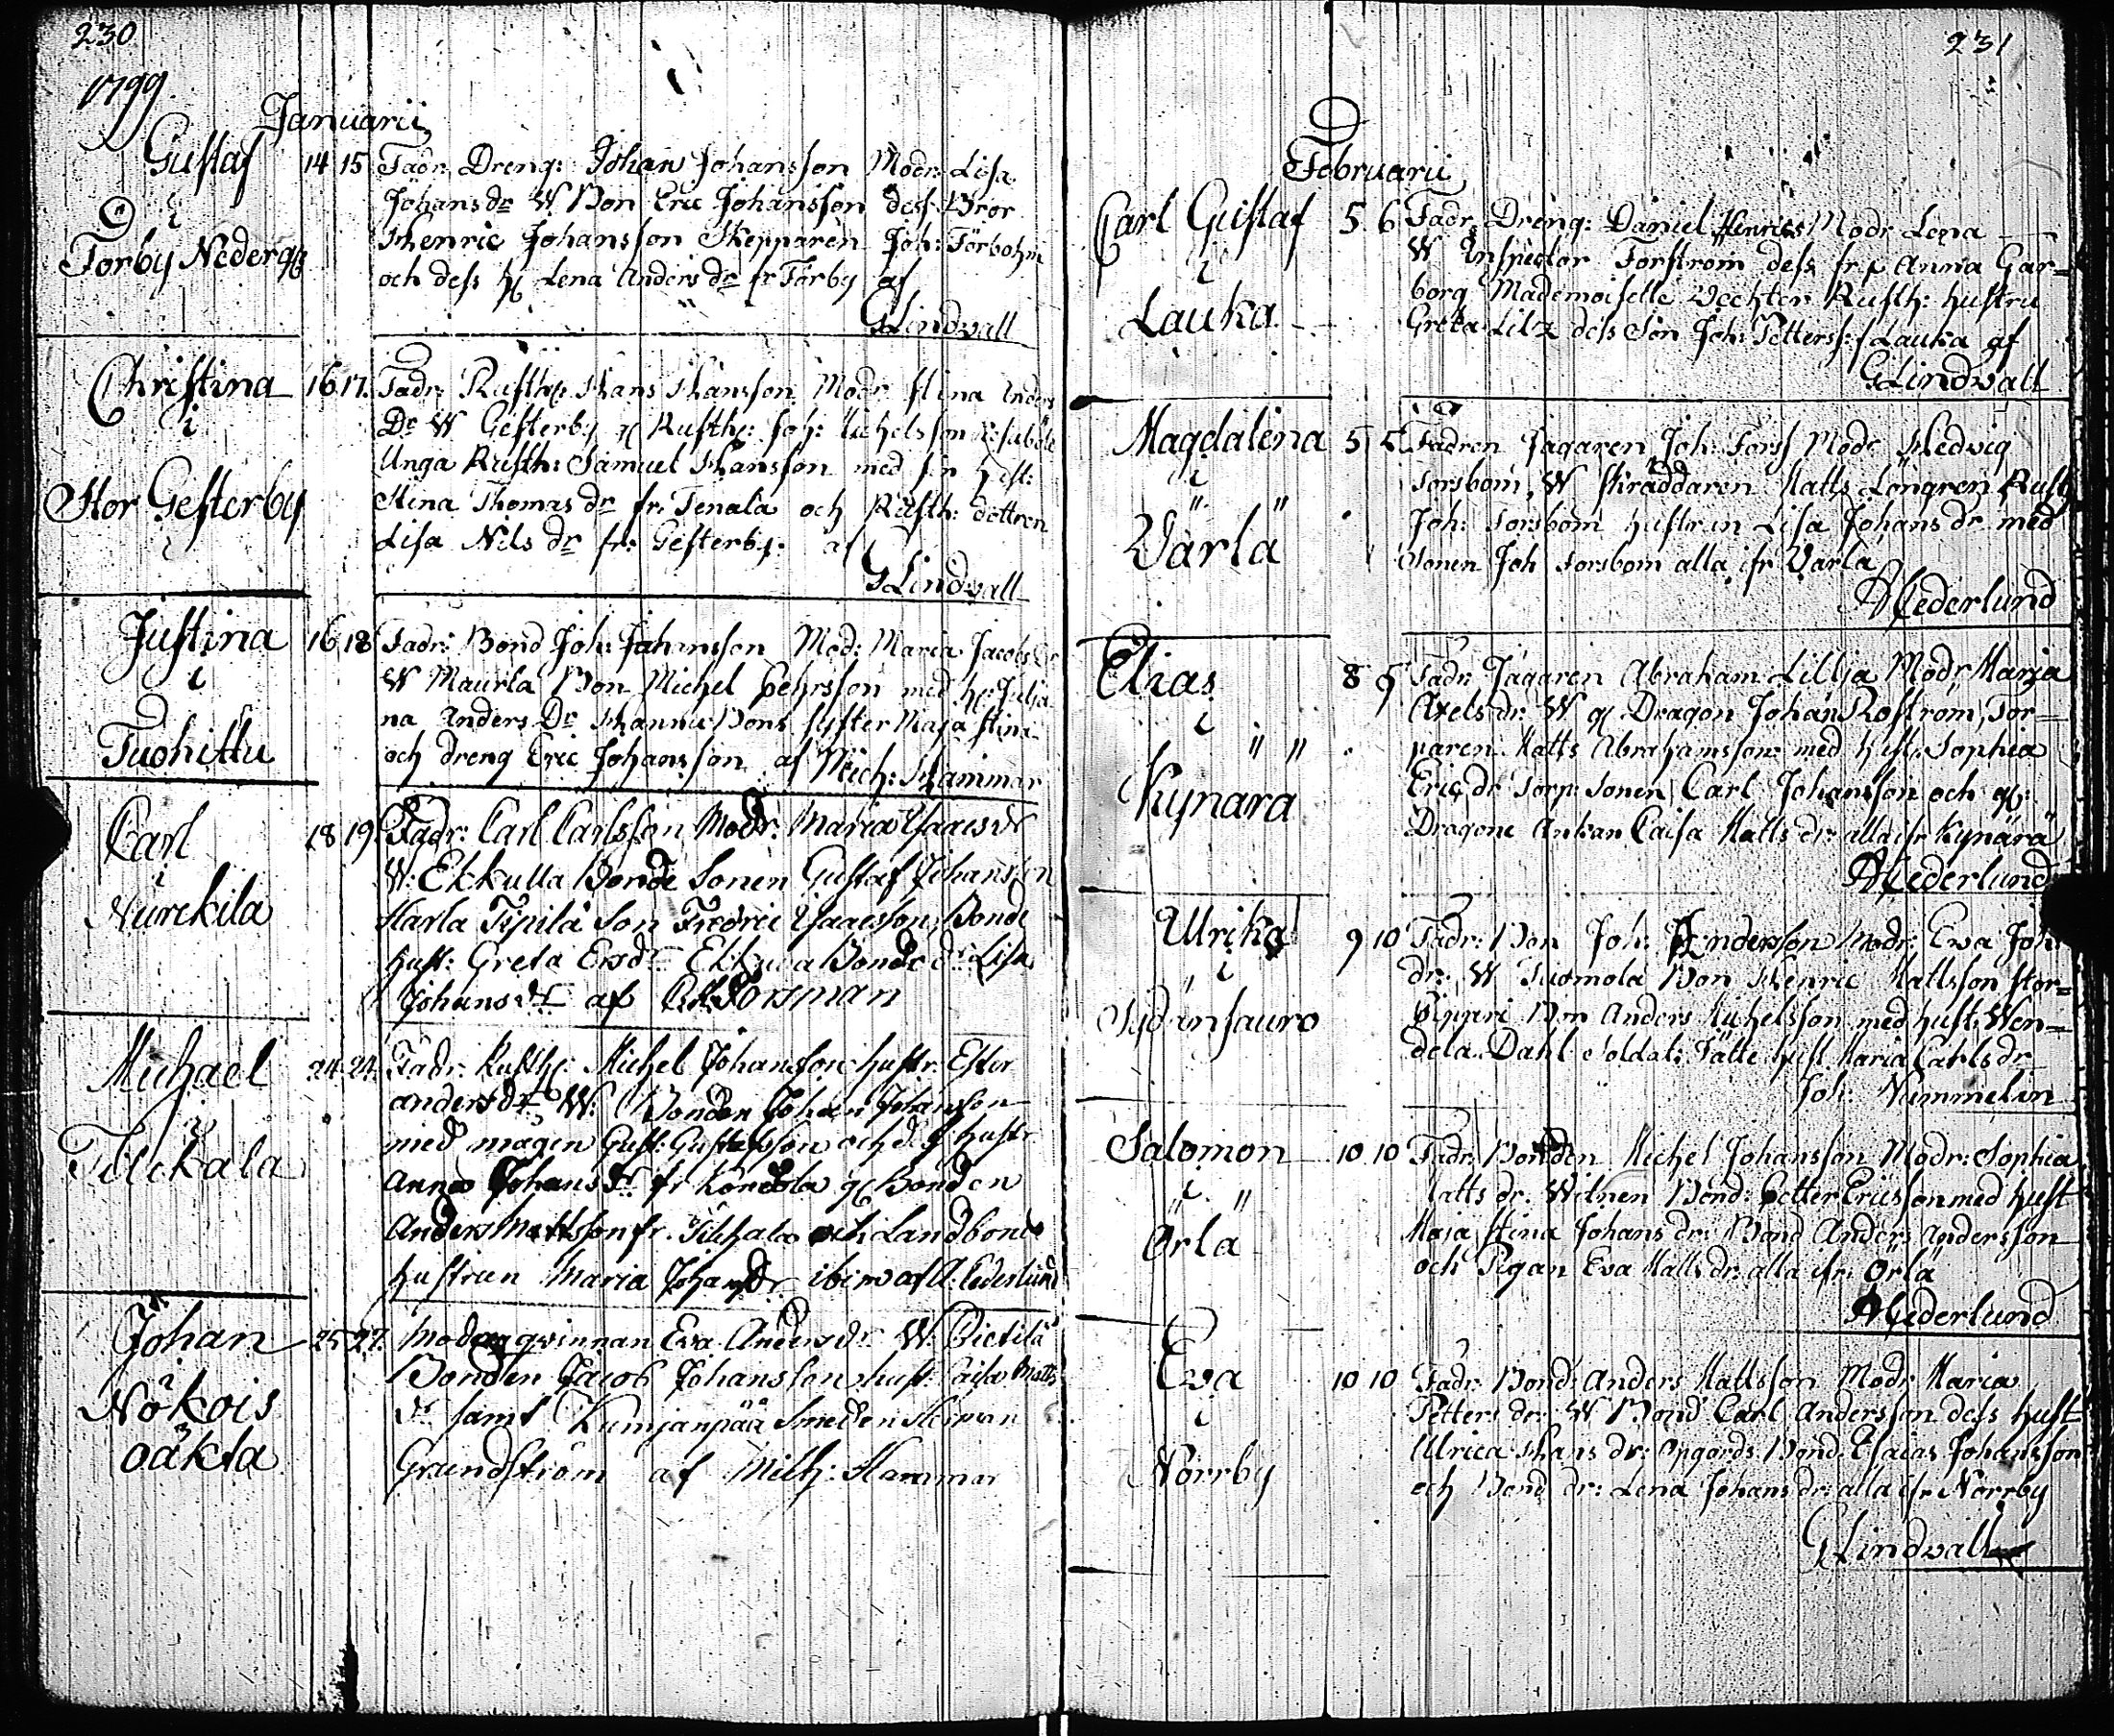 230
1799
Januarii
Gustaf 14 15 Fadr: Dreng: Johan Johansson Modr: Lisa
i Johans dr W Bon Eric Johansson dess Bror
Förby Nederg Henric Johansson Skepparen Joh: Förbohm
och dess h Lena Anders dr fr Förby af
GLindvall
Christina 16 17. Fadr: Rusth: Hans Hansson Modr Stina Anders
i Dr W Gesterby g Rusth: Joh: Michelsson
Stor Gesterby Unga Rusth: Samuel Hansson med sin hust:
Stina Thomas dr fr. Tenala och Rusth: dottren
Lisa Nils dr fr: Gesterby: af
GLindvall
Justina 16 18 Fadr: Bond Joh: Johansson Mod: Maria Jacobs dr
i W Maurla Bon Michel Pehrsson med h: Julia
Tuohittu na Anders Dr Hannu Bons syster Maja Stina
och dreng Eric Johansson af Mich: Hammar
Carl 18 19 Fadr: Carl Carlsson Modr: Maria Isaacs dr
i W: Ekkulla Bonde Sonen Gustaf Johansson
Nurckila Harla Tipilä Son Fredric Isaacsson, Bonde
hust: Greta Ersdr Ekkulla Bonde dr Lisa
Johans dr af Forsman
Michael 24 24. Fadr. Rusth: Michel Johansson hustr. Ester
i anders dr W: Bonden Johan Johanson
Tilckala med mågen Gust: Gustafsson och d: g hustr
Anna Johans dr fr Kordola g Bonden
Anders Mattsson fr. Tilckala och Landbonde
hustrun Maria Johans dr ibim af A: Cederlund
Johan 25 27. Modern qvinnan Eva Anders dr W: Pietilä
i Bonden Jacob Johansson hust: Caisa Matts
Nökois dr samt Kumjanpää Smeden Herman
oäkta Grundström af Mich: Hammar
231
Februarii
Carl Gustaf 5 6 Fadr Dreng: Daniel Henrics Modr Lena
i W Inspector Forström dess fru Anna Gar=
Lauka borg Mademoiselle Vechter Rusth: hustru
Greta Lilz dess Son Joh: Petterss: f Lauka af
GLindvall
Magdalena 5 5 Fadren Jägaren Joh: Forss Modr Hedvig
i Torsbom, W Skräddaren Matts Löngren Rusth
Värlä Joh: Torsbom hustrun Lisa Johans dr med
sonen Joh Torsbom alla ifr Värlä
ACederlund
Elias 8 9 Fadr: Jägaren Abraham Lillja Modr Maria
i Axels dr: W g Dragon Johan Roström, Tor=
Kynärä paren Matts Abrahamsson med hust: Sophia
Erics dr Torp: Sonen Carl Johansson och g:
Dragone Ankan Caisa Matts dr: alla ifr Kynärä
ACederlund
Ulrika 9 10 Fadr: Bon Joh: Andersson Modr: Eva Joh
i dr: W Tuomola Bon Henric Mattsson Stor=
Sydänsauro Pippari Bon Anders Michelsson med hust: Wen=
dela Dahl Soldat: Tätte hust Maria Carls dr
Joh: Nummelin
Salomon 10 10 Fadr: Bonden Michel Johansson Modr: Sophia
i Matts dr: Witnen Bond: Petter Ericsson med hust
Örlä Maja Stina Johans dr: Bond Anders Andersson
och Pigan Eva Matts dr: alla ifr: Örlä
ACederlund
Eva 10 10 Fadr: Bond: Anders Mattsson Modr Maria
i Petters dr: W Bond Carl Andersson dess hust
Norrby Ulrica Hans dr: Opgårds Bond: Esaias Johansson
och Bond dr: Lena Johans dr: alla ifr Norrby
GLindvall